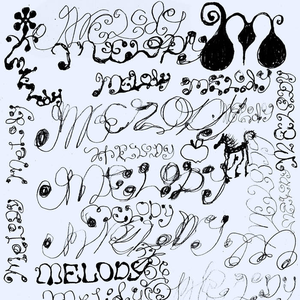 MELODY
MELODY
M
MELODY
MELODY
MELODY
MELODY
MELODY
MELODY
MELODY
MELODY
MELODY
MELODY
MELODY
MELODY